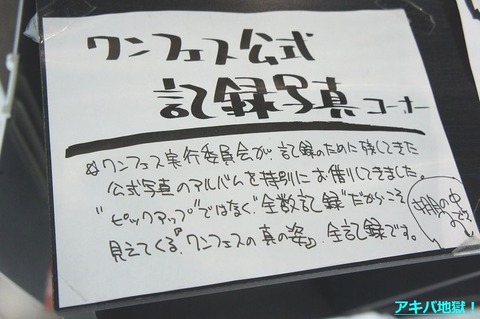 ワンフェス公式
記録写真コーナー
ワンフェス実行委員会が、記録のために残してきた
公式写真のアルバムを特別にお借りしてきました。
"ピックアップ"ではなく"全数記録"だからこそ
見えてくる『ワンフェスの真の姿』全記録です。
アキバ地獄！